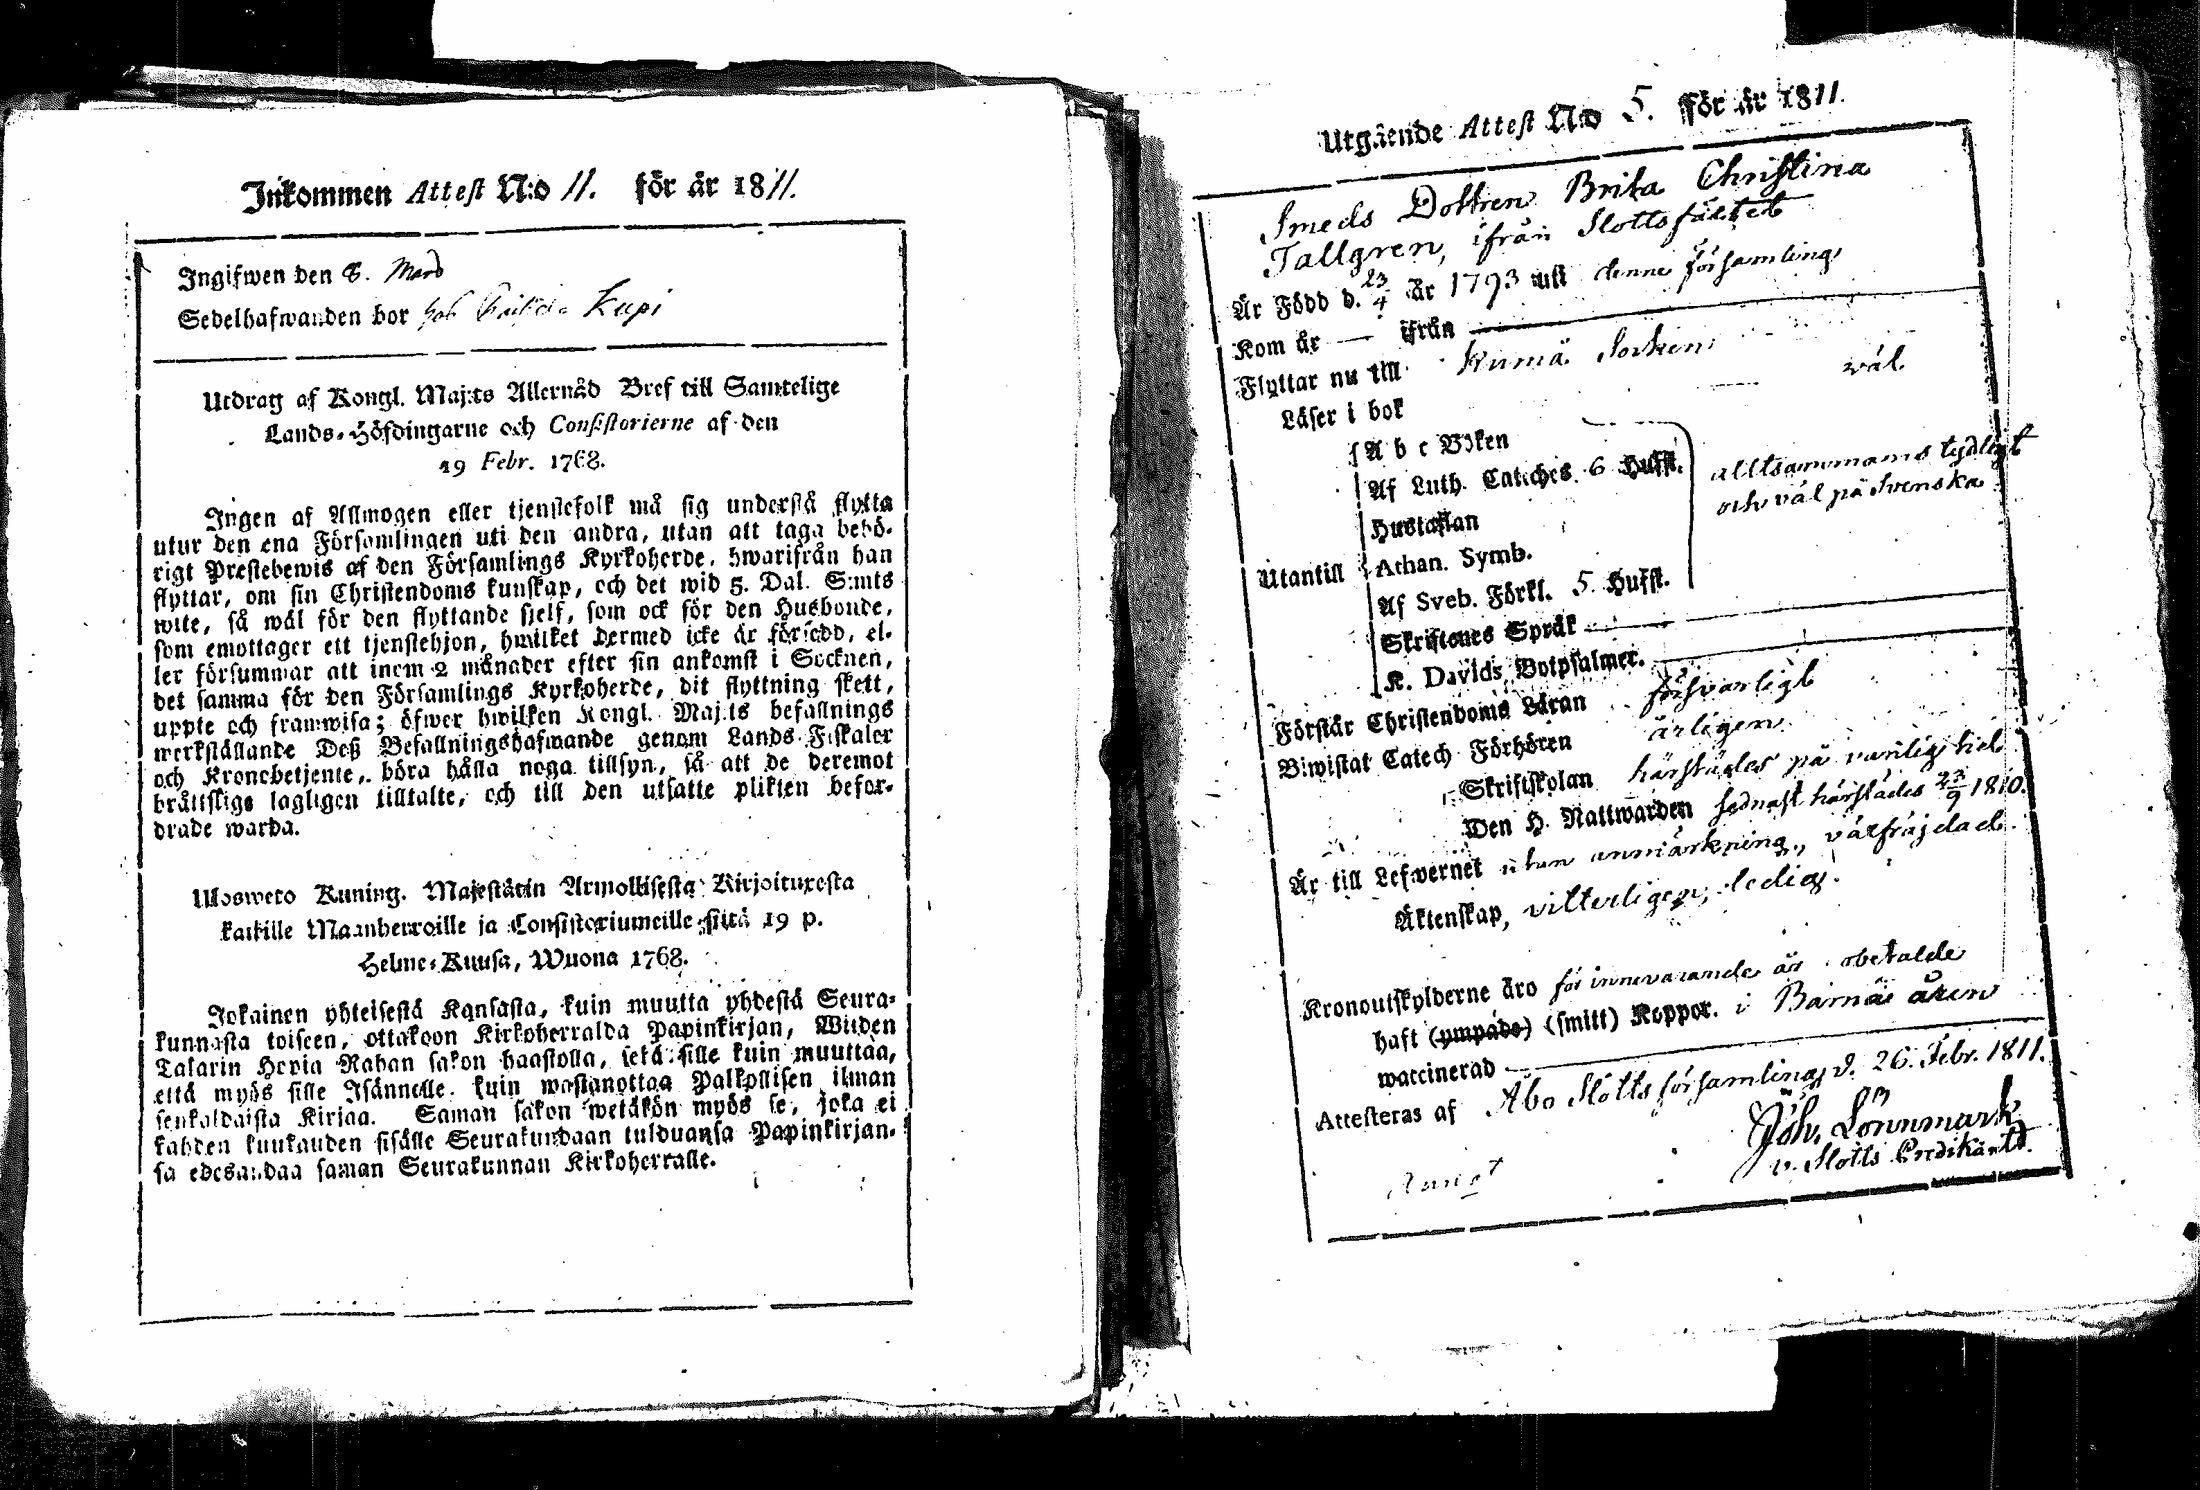 Inkommen Attest N:o 11. för år 1811.
Ingifwen den 8. Mars
Sedelhafwanden bor hos Kupi
Utdrag af Kongl. Maj:ts Allernåd Bref till Samtelige
Lands-Höfdingarne och Consistorierne af den
19 Febr. 1768.
Ingen af Allmogen eller tjenstefolk må sig understå flytta
utur den ena Församlingen uti den andra, utan att taga behö-
rigt Prestebewis af den Församlings Kyrkoherde, hwarifrån han
flyttar, om sin Christendoms kunskap, och det wid 5. Dal. S:mts
wite, så wäl för den flyttande sjelf, som ock för den Husbonde,
som emottager ett tjenstehjon, hwilket dermed icke är försedd, el-
ler försummar att inem 2 månader efter sin ankomst i Socknen,
det samma för den Församlings Kyrkoherde, dit flyttning skett,
uppte och framwisa; öfwer hwilken Kongl. Maj:ts befallnings
werkställande Deß Befallningshafwande genom Lands-Fiskaler
och Kronobetjente, böra hålla noga tillsyn, så att de deremot
bråttslige lagligen tilltalte, och till den utsatte plikten befor-
drade warda.
Ulosweto Kuning. Majestätin Armollisesta Kirjoituxesta
kaikille Maanherroille ja Consistoriumeille siitä 19 p.
Helme-Kuusa, Wuona 1768.
Jokainen yhteisestä Kansasta, kuin muutta yhdestä Seura-
kunnasta toiseen, ottakoon Kirkoherralda Papinkirjan, Wiiden
Talarin Hopia Rahan sakon haastolla, sekä sille kuin muuttaa,
että myös sille Isännelle, kuin wastanottaa Palkollisen ilman
senkaldaista Kirjaa. Saman sakon wetäkön myös se, joka ei
kahden kuukauden sisälle Seurakundaan tulduansa Papinkirjan-
sa edesandaa saman Seurakunnan Kirkoherralle.
Utgående Attest N:o 5. för år 1811.
Smeds Dottren Brita Christina
Tallgren, ifrån Slottsfältet
Är Född d. 23/4 år 1793 uti denne församling
Kom år — ifrån —
Flyttar nu till Kumå Socken
Läser i bok wäl
A b c Boken
Af Luth. Catches. 6 Hufst.
Hustaflan
alltsammans tydligt
och väl på Svenska
Utantill Athan. Symb.
Af Sveb. Förkl. 5. Hufst.
Skriftenes Språk —
K. Davids Botpsalmer. —
Förstår Christendoms Läran försvarligt
Biwistat Catech Förhören årligen
Skriftskolan härstädes på vanlig tid
Den H. Nattwarden sednast härstädes 23/9 1810.
Är till Lefwernet utan anmärkning, välfräjdad.
Äktenskap, vitterligen, ledig.
Kronoutskylderne äro för innevarande år obetalde
haft (ympade) (smitt) Koppor. i Barnaåren
waccinerad —
Attesteras af Åbo Slottsförsamling d. 26. Febr. 1811.
Joh. Lönnmark
v. Slotts Predikant